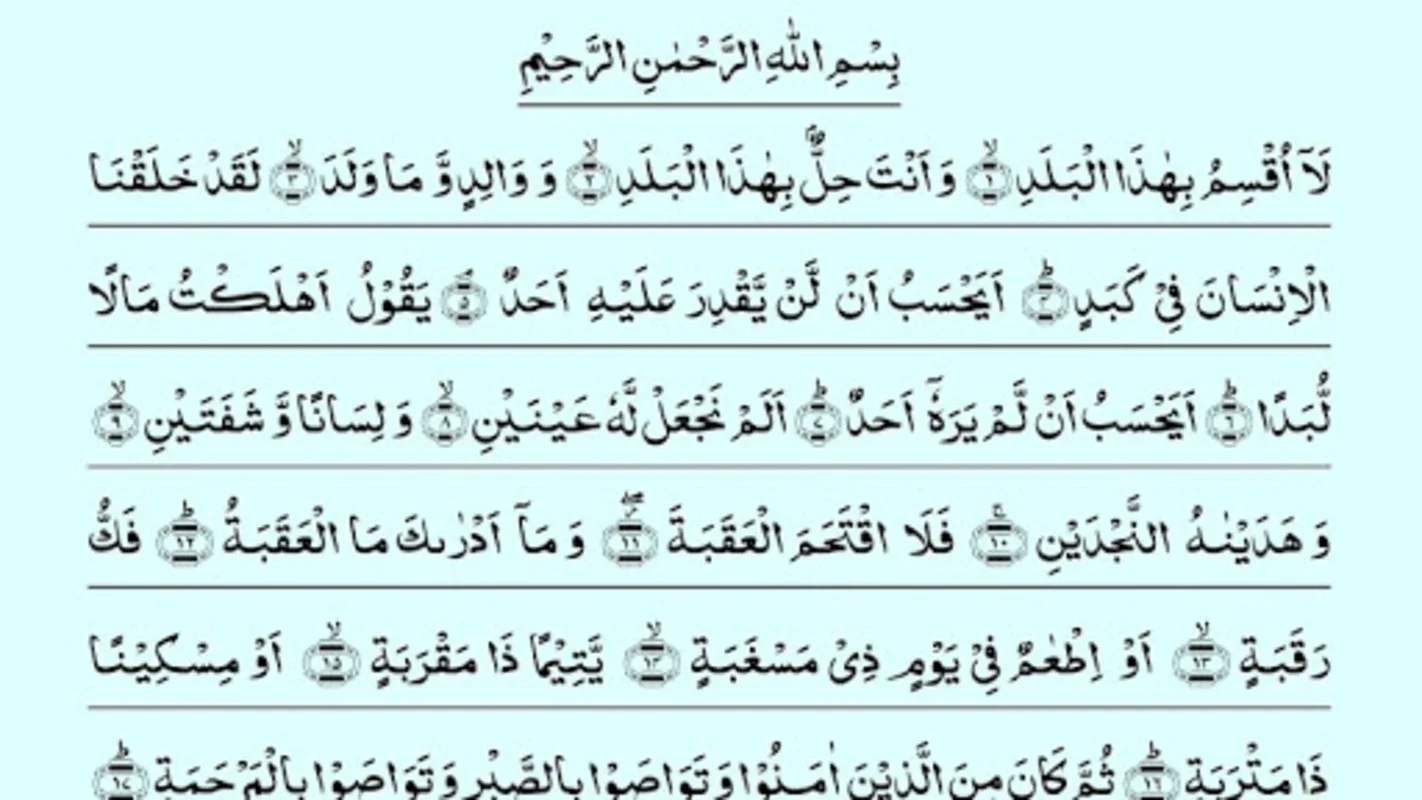 بِسْمِ اللّٰهِ الرَّحْمٰنِ الرَّحِيْمِ
لَآ اُقْسِمُ بِهٰذَا الْبَلَدِ ۙ﴿١﴾ وَ اَنْتَ حِلٌّۢ بِهٰذَا الْبَلَدِ ۙ﴿٢﴾ وَ وَالِدٍ وَّ مَا وَلَدَ ۙ﴿٣﴾ لَقَدْ خَلَقْنَا
الْاِنْسَانَ فِيْ كَبَدٍ ؕ﴿٤﴾ اَيَحْسَبُ اَنْ لَّنْ يَّقْدِرَ عَلَيْهِ اَحَدٌ ۘ﴿٥﴾ يَقُوْلُ اَهْلَكْتُ مَالًا
لُّبَدًا ؕ﴿٦﴾ اَيَحْسَبُ اَنْ لَّمْ يَرَهٗۤ اَحَدٌ ؕ﴿٧﴾ اَلَمْ نَجْعَلْ لَّهٗ عَيْنَيْنِ ۙ﴿٨﴾ وَ لِسَانًا وَّ شَفَتَيْنِ ۙ﴿٩﴾
وَ هَدَيْنٰهُ النَّجْدَيْنِ ۚ﴿١٠﴾ فَلَا اقْتَحَمَ الْعَقَبَةَ ۖ﴿١١﴾ وَ مَاۤ اَدْرٰىكَ مَا الْعَقَبَةُ ؕ﴿١٢﴾ فَكُّ
رَقَبَةٍ ۙ﴿١٣﴾ اَوْ اِطْعٰمٌ فِيْ يَوْمٍ ذِيْ مَسْغَبَةٍ ۙ﴿١٤﴾ يَّتِيْمًا ذَا مَقْرَبَةٍ ۙ﴿١٥﴾ اَوْ مِسْكِيْنًا
ذَا مَتْرَبَةٍ ؕ﴿١٦﴾ ثُمَّ كَانَ مِنَ الَّذِيْنَ اٰمَنُوْا وَ تَوَاصَوْا بِالصَّبْرِ وَ تَوَاصَوْا بِالْمَرْحَمَةِ ؕ﴿١٧﴾